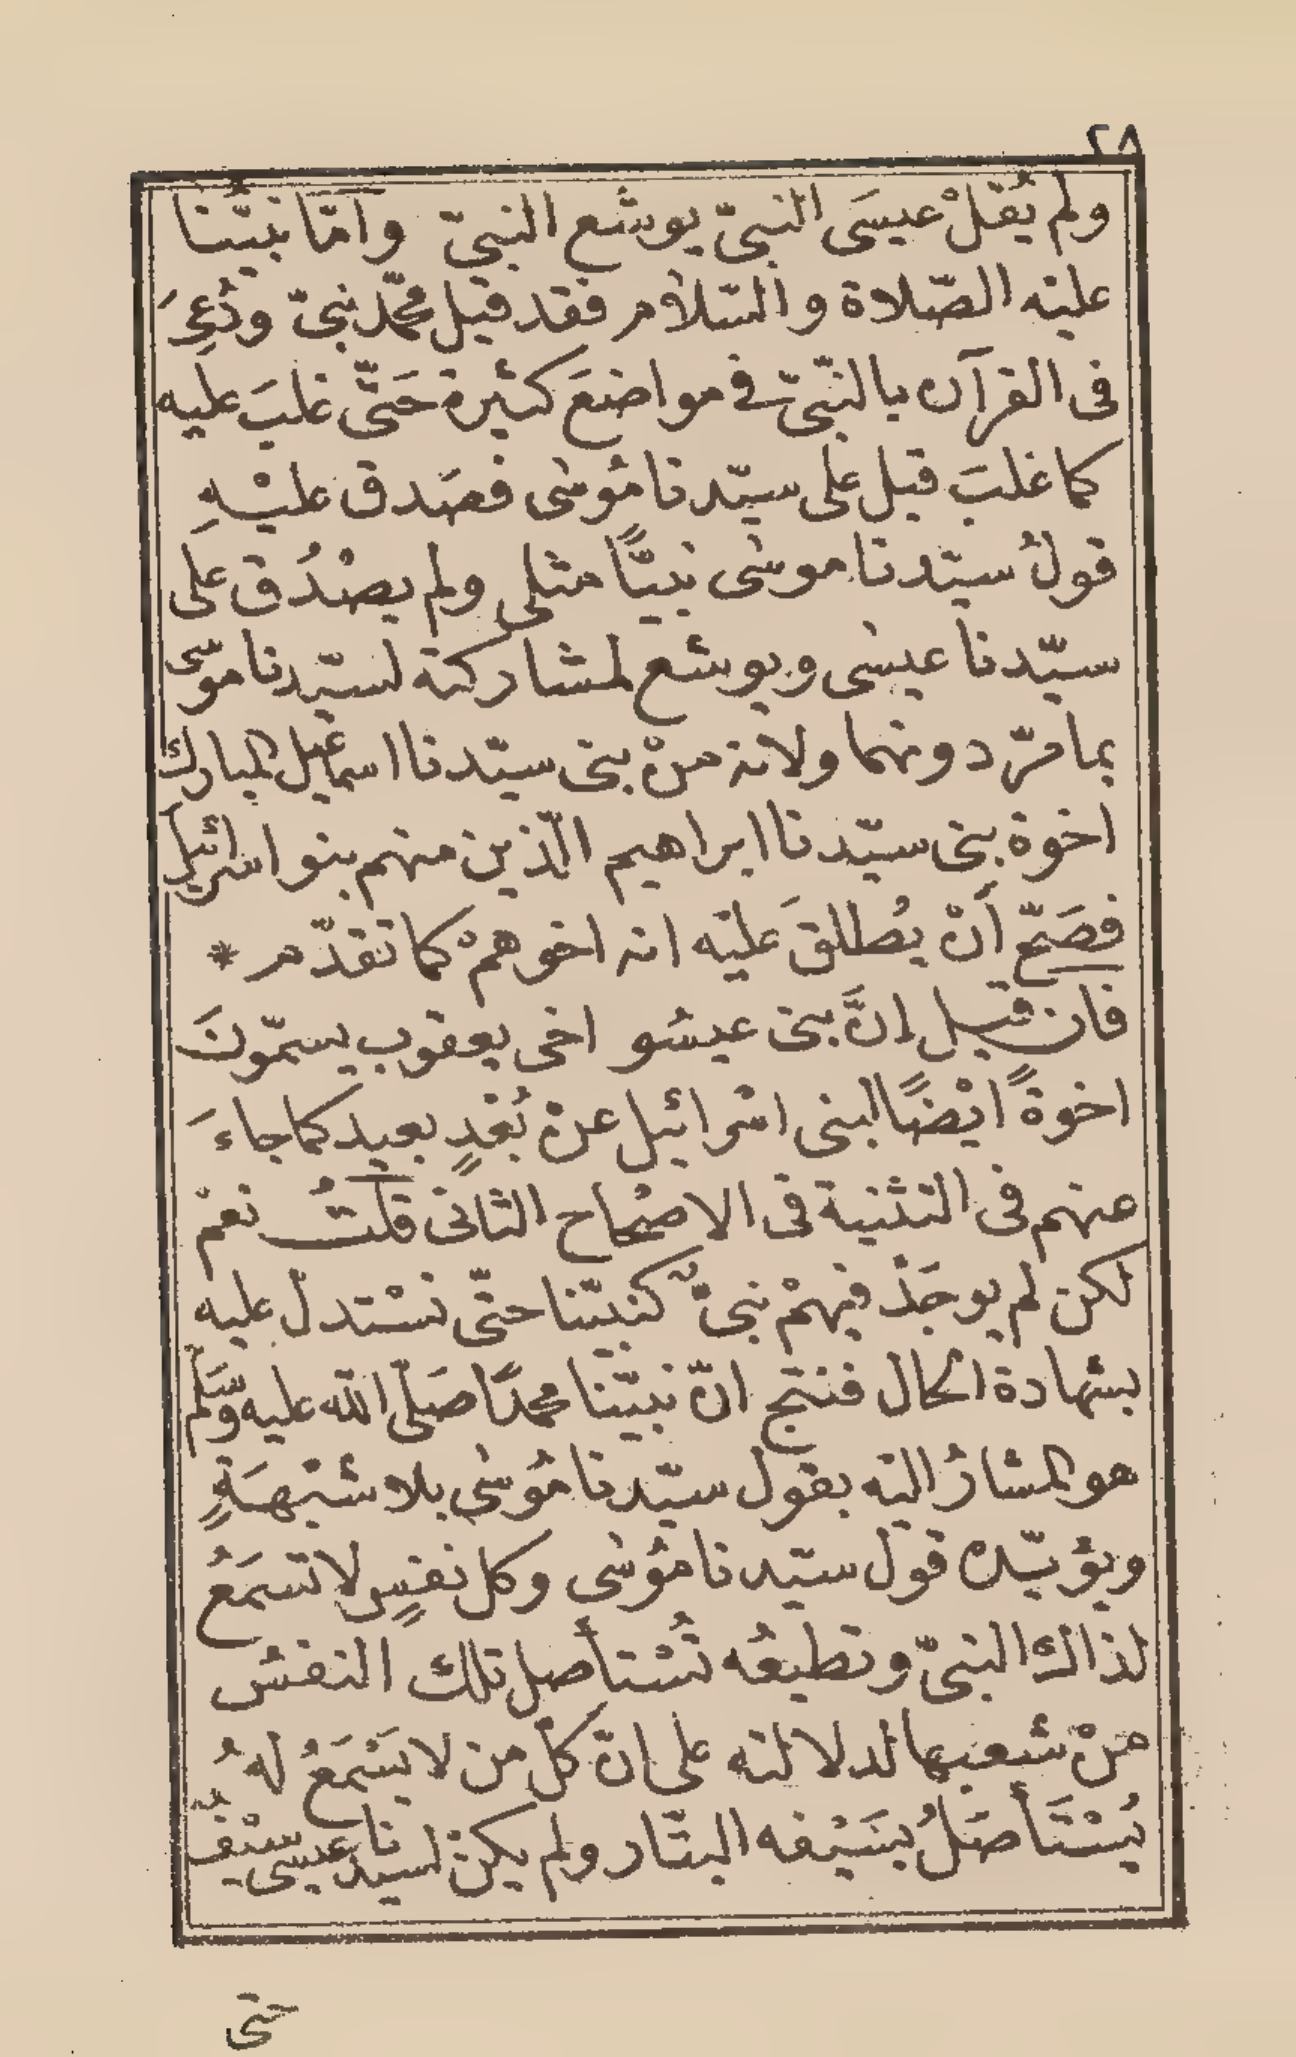 ٢٨
ولم يُقَلْ عيسَى النبىّ يوشع النبىّ وامّا نبيّنا
عليه الصّلاة والسّلام فقد قيل محمّد نبىّ ودُعِىَ
فى القرآن بالنّبىّ فى مواضعَ كثيرة حَتّى غلبَ عليه
كما غلبَ قبل على سيّدنا مُوسٰى فصَدق عليْهِ
قولُ سيّدنا موسٰى نبيًّا مثلى ولم يصْدُق على
سيّدنا عيسٰى ويوشع لمشاركته لسيّدنا موسٰى
بما مرّ دونهما ولانه منْ بنى سيّدنا اسماعيل المبارك
اخوة بنى سيّدنا ابراهيم الّذين منهم بنو اسرائيل
فصَحّ أنْ يُطلقَ عليْه انه اخوهمْ كما تقدّم *
فان قيل إنَّ بنى عيسُو اخى يعقوب يسمّونَ
اخوةً ايْضًا لبنى اسْرائيل عنْ بُعْدٍ بعيد كما جاءَ
عنهم فى التثنية فى الاصْحاح الثانى قلتُ نعمْ
لكن لم يوجَدْ فيهمْ نبىٌّ كنبيّنا حتّى نسْتدلّ عليه
بشهادة الحال فنتج انّ نبيّنا محمدًا صَلّى الله عليه وَسَلّم
هو المشارُ اليْه بقول سيّدنا مُوسٰى بلا شبْهَةٍ
ويؤيّده قول سيّدنا مُوسٰى وكل نفسٍ لا تسمَعُ
لذاك النبىّ وتطيعُه تُسْتأصل تلك النفسُ
منْ شعبها لدلالته على انّ كلّ من لا يَسْمَعُ لهُ
يُسْتَأصَلُ بسَيْفه البتّار ولم يكنْ لسيّدنا عيسى سيْفٌ
حتى